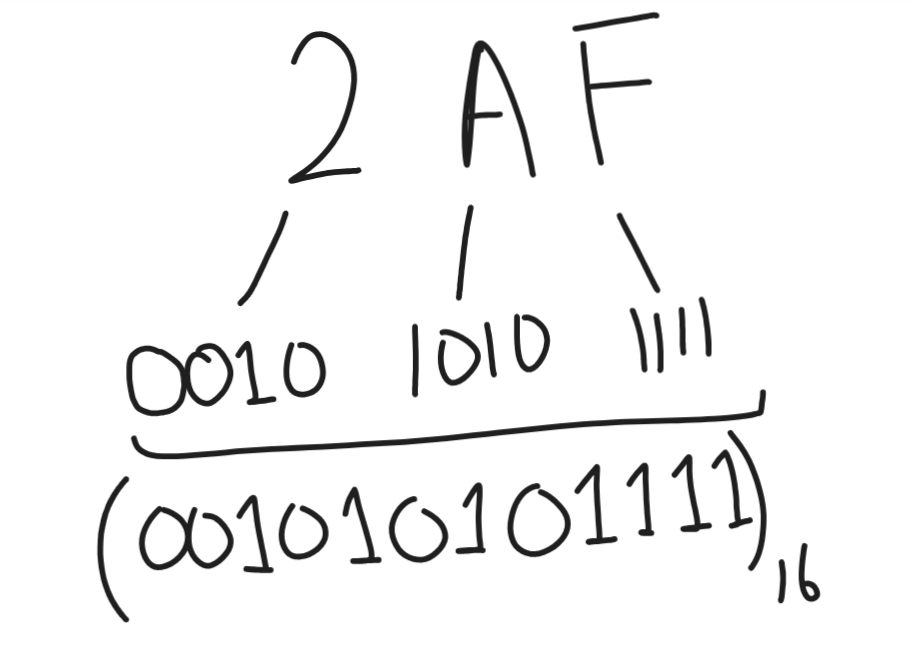 2 A F
0010 1010 1111
(001010101111)16